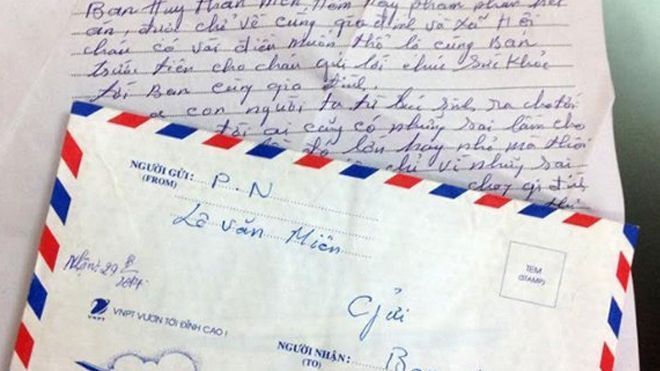 Bạn Huy thân mến, Hôm nay phạm nhân hết
án, được chỉ về cùng gia đình và Xã Hội
cháu có vài điều muốn thổ lộ cùng Bạn
trước tiên cho cháu gửi lời chúc Sức Khỏe
tới Bạn cùng gia đình.
con người ta từ lúc sinh ra cho tới
tời ai cũng có những sai lầm cho
lớn hay nhỏ mà thôi
chỉ vì những sai
gì
NGƯỜI GỬI :
(FROM)
P.N
Lê Văn Miên
Nhận: 29/8/2014
TEM
(STAMP)
VNPT
VNPT VƯƠN TỚI ĐỈNH CAO !
Gửi
NGƯỜI NHẬN :
(TO)
Ba